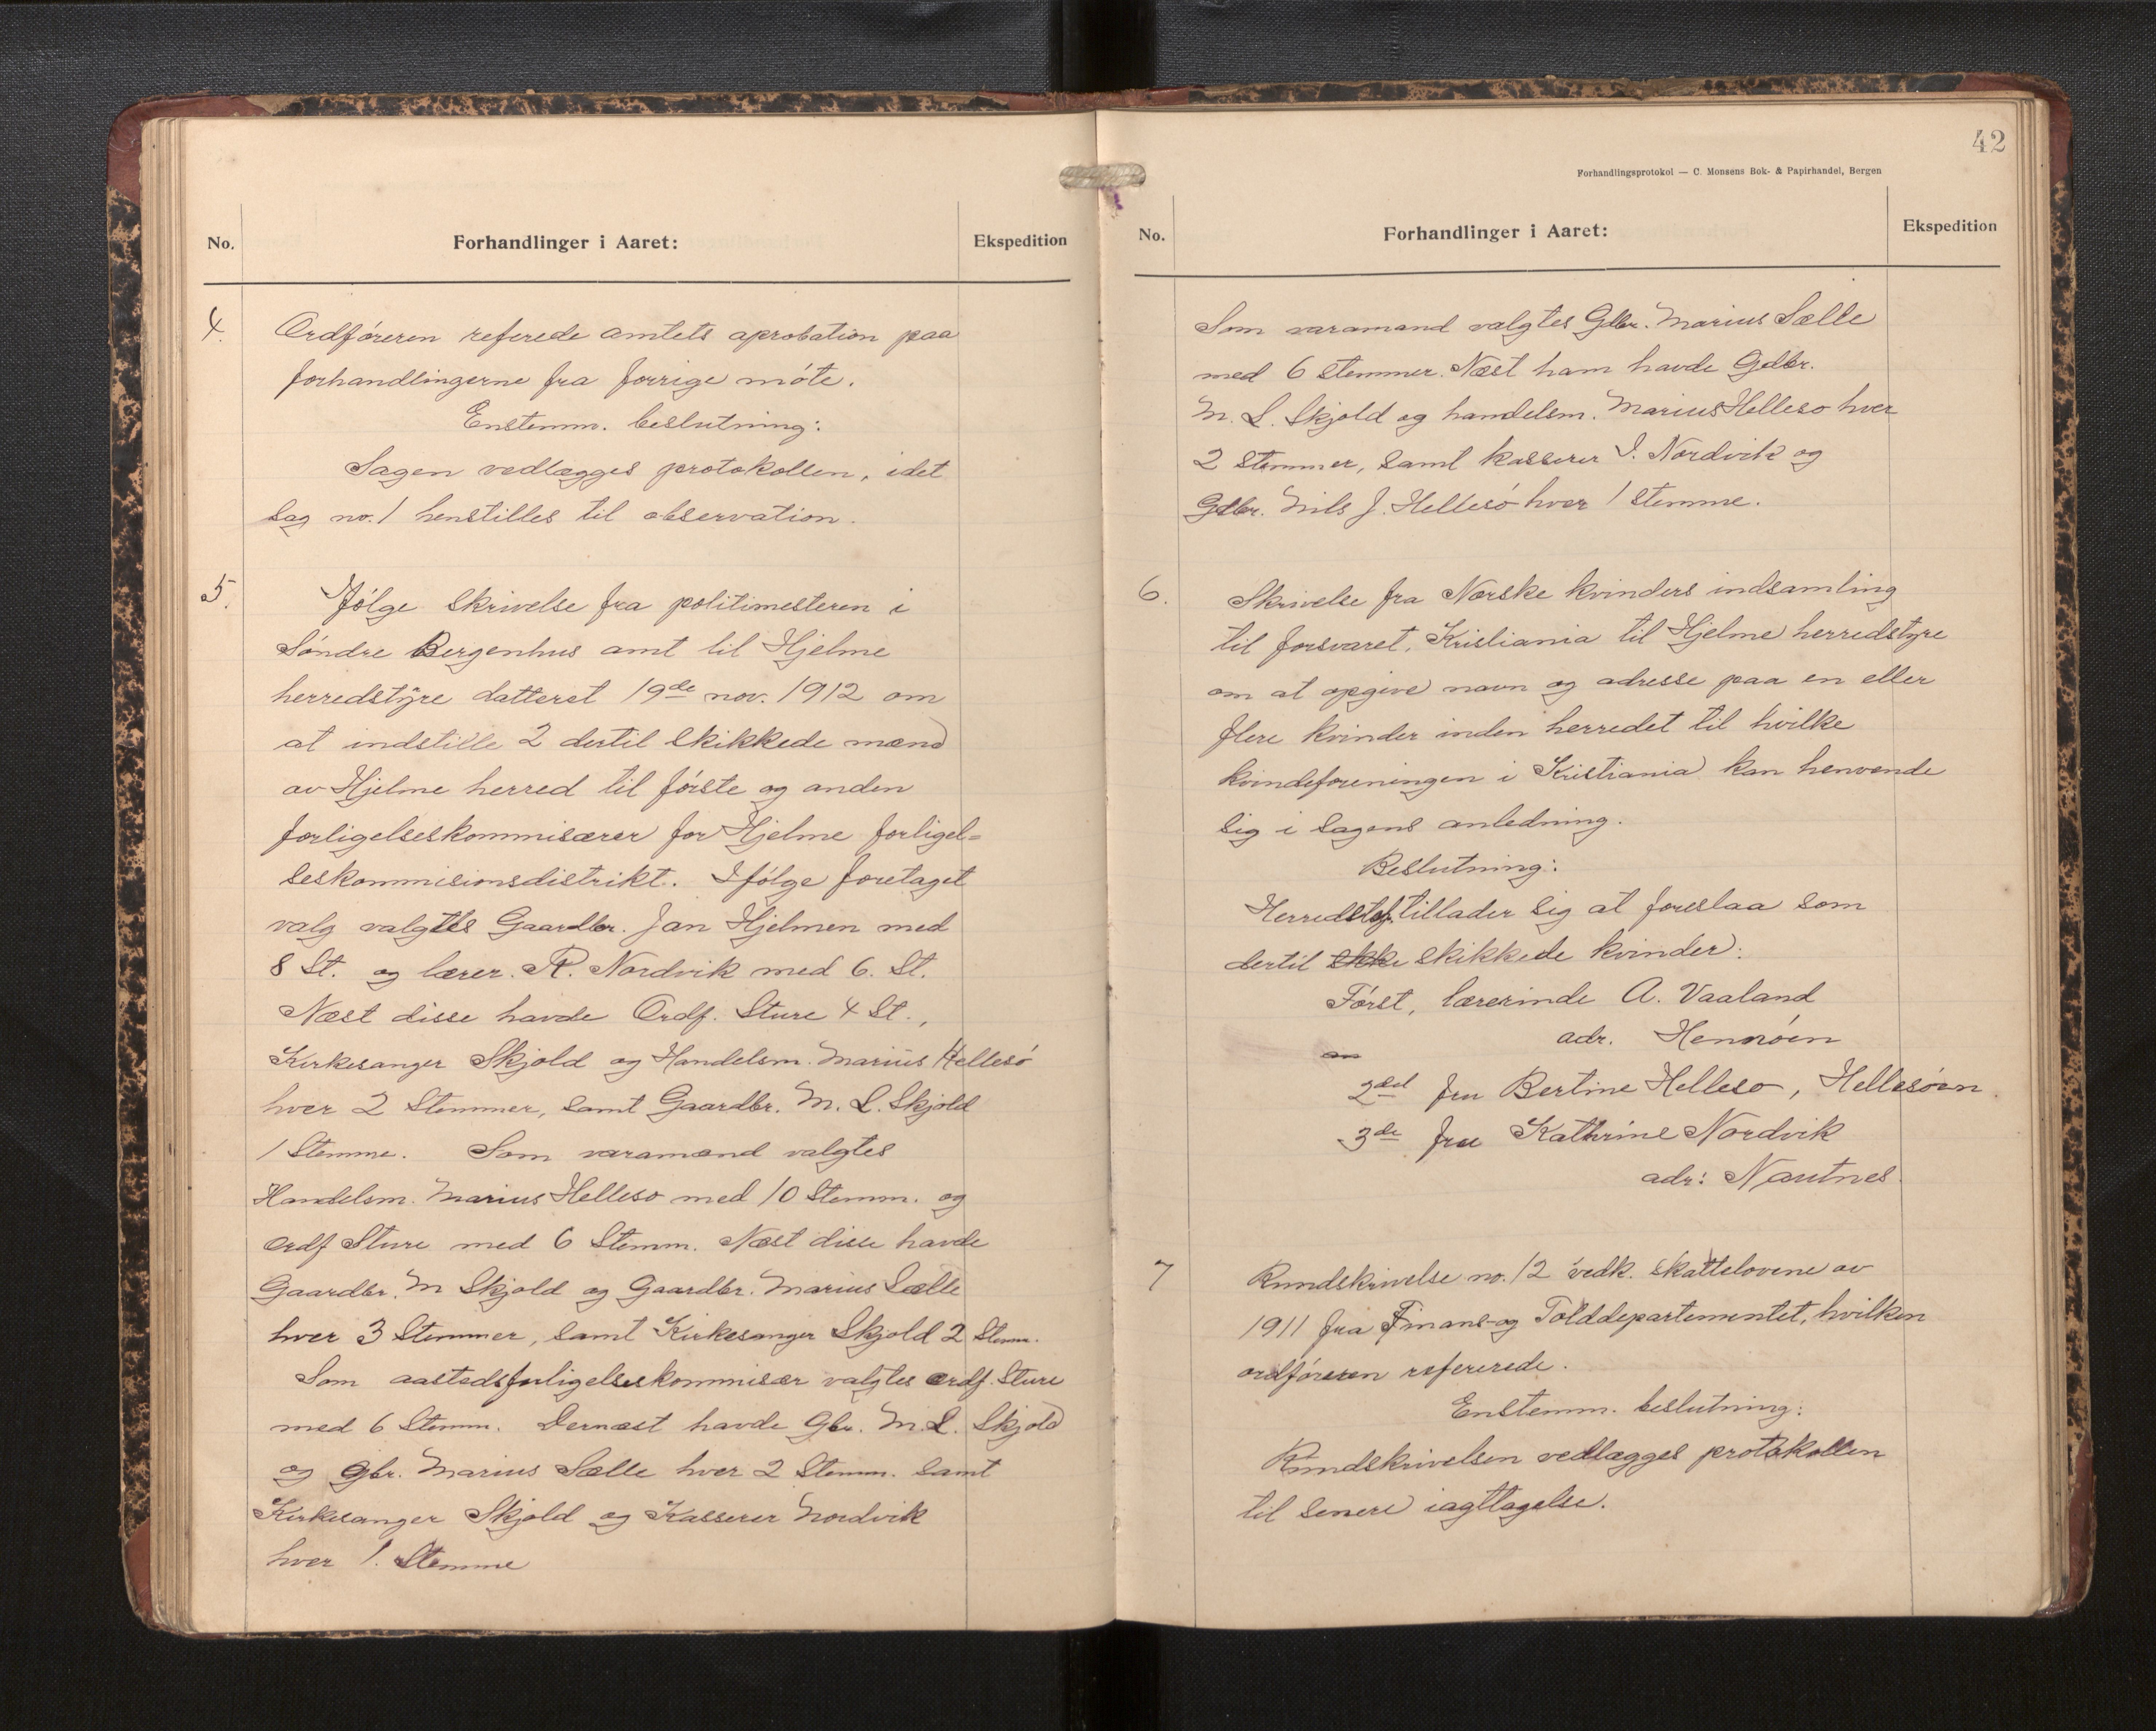 No.
Forhandlinger i Aaret:
Ekspedition
4.
Ordføreren referede amtets aprobation paa
forhandlingerne fra forrige møte.
Enstemm. beslutning:
Sagen vedlægges protokollen, idet
sag no. 1 henstilles til observation.
5.
Ifølge skrivelse fra politimesteren i
Søndre Bergenhus amt til Hjelme
herredstyre datteret 19de nov. 1912 om
at indstille 2 dertil skikkede mænd
av Hjelme herred til første og anden
forligelseskommisærer for Hjelme forligel=
seskommisionsdistrikt. Ifølge foretaget
valg valgtes Gaardbr. Jan Hjelmen med
8 St. og lærer. R. Nordvik med 6. St.
Næst disse havde Ordf. Sture 4 St.,
Kirkesanger Skjold og Handelsm. Marius Hellesø
hver 2 Stemmer, samt Gaardbr. M. L. Skjold
1 Stemme. Som varamænd valgtes
Handelsm. Marius Helleso med 10 Stemm. og
Ordf Sture med 6 Stemm. Næst disse havde
Gaardbr. M Skjold og Gaardbr. Marius Sælle
hver 3 Stemmer, samt Kirkesanger Skjold 2 Stem.
Som aastedsforligelseskommisær valgtes Ordf. Sture
med 6 Stemm. Dernæst havde Gbr. M. L. Skjold
og Gbr. Marius Sælle hver 2 Stemm. samt
Kirkesanger Skjold og Kasserer Nordvik
hver 1. Stemme
42
Forhandlingsprotokol — C. Monsens Bok- & Papirhandel, Bergen
No.
Forhandlinger i Aaret:
Ekspedition
Som varamand valgtes Gdbr. Marius Sælle
med 6 stemmer. Næst ham havde Gdbr.
M. L. Skjold og handelsm. Marius Helleso hver
2 stemmer, samt kasserer I. Nordvik og
Gdbr. Nils J. Hellesø hver 1 stemme.
6.
Skrivelse fra Norske kvinders indsamling
til forsvaret, Kristiania til Hjelme herredstyre
om at opgive navn og adresse paa en eller
flere kvinder inden herredet til hvilke
kvindeforeningen i Kristiania kan henvende
sig i sagens anledning.
Beslutning:
Herredsty. tillader sig at foreslaa som
dertil skikkede kvinder:
Først, lærerinde A. Vaaland
adr. Hennøen
2ed fru Bertine Helleso, Hellesøen
3de fru Kathrine Nordvik
adr: Nautnes.
7
Rundskrivelse no. 12 vedk. skattelovene av
1911 fra Finans- og Tolddepartementet, hvilken
ordføreren refererede.
Enstemm. beslutning:
Rundskrivelsen vedlægges protokollen
til senere iagttagelse.